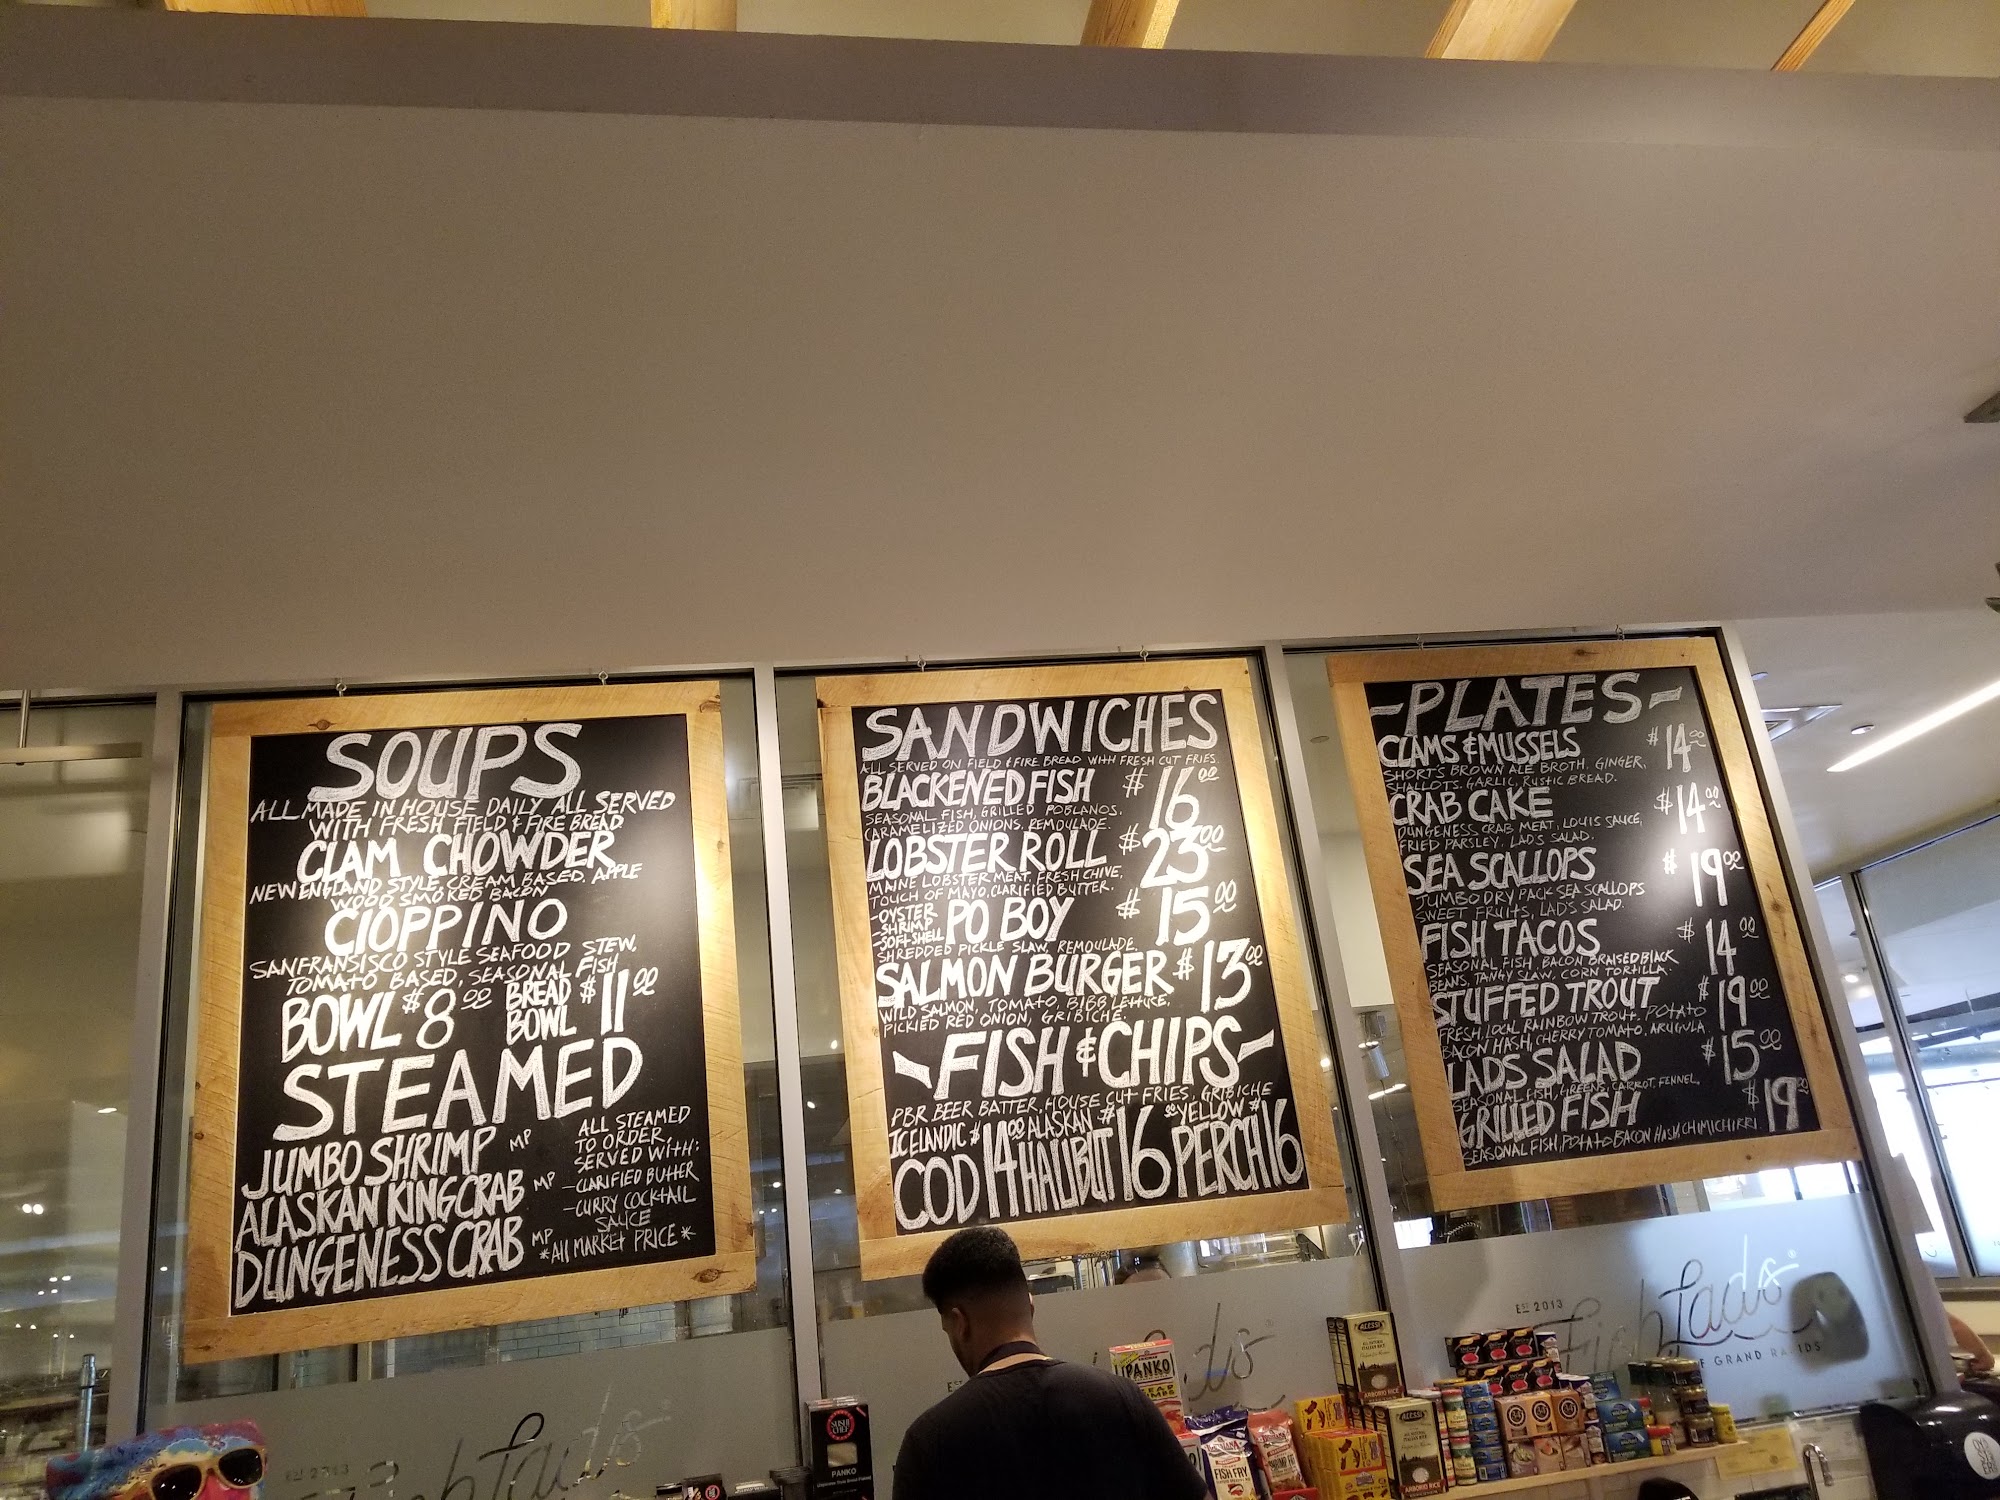 SOUPS
ALL MADE IN HOUSE DAILY ALL SERVED
WITH FRESH FIELD & FIRE BREAD.
CLAM CHOWDER
NEW ENGLAND STYLE, CREAM BASED, APPLE
WOOD SMOKED BACON
CIOPPINO
SANFRANSISCO STYLE SEAFOOD STEW,
TOMATO BASED, SEASONAL FISH
BOWL $8.00 BREAD BOWL $11.00
STEAMED
JUMBO SHRIMP MP
ALASKAN KING CRAB MP
DUNGENESS CRAB MP
ALL STEAMED
TO ORDER,
SERVED WITH:
-CLARIFIED BUTTER
-CURRY COCKTAIL
SAUCE
*All MARKET PRICE*
SANDWICHES
ALL SERVED ON FIELD & FIRE BREAD WITH FRESH CUT FRIES.
BLACKENED FISH $16.00
SEASONAL FISH, GRILLED POBLANOS,
CARAMELIZED ONIONS, REMOULADE.
LOBSTER ROLL $23.00
MAINE LOBSTER MEAT, FRESH CHIVE,
TOUCH OF MAYO, CLARIFIED BUTTER.
-OYSTER
-SHRIMP
-SOFTSHELL
PO BOY $15.00
SHREDDED PICKLE SLAW, REMOULADE.
SALMON BURGER $13.00
WILD SALMON, TOMATO, BIBB LETTUCE,
PICKLED RED ONION, GRIBICHE.
-FISH & CHIPS-
PBR BEER BATTER, HOUSE CUT FRIES, GRIBICHE
ICELANDIC COD $14.00 ALASKAN HALIBUT $16.00 YELLOW PERCH $16
-PLATES-
CLAMS & MUSSELS $14.00
SHORT'S BROWN ALE BROTH, GINGER,
SHALLOTS, GARLIC, RUSTIC BREAD.
CRAB CAKE $14.00
DUNGENESS CRAB MEAT, LOUIS SAUCE,
FRIED PARSLEY, LADS SALAD.
SEA SCALLOPS $19.00
JUMBO DRY PACK SEA SCALLOPS
SWEET FRUITS, LAD'S SALAD.
FISH TACOS $14.00
SEASONAL FISH, BACON BRAISED BLACK
BEANS, TANGY SLAW, CORN TORTILLA.
STUFFED TROUT $19.00
FRESH, LOCAL RAINBOW TROUT, POTATO
BACON HASH, CHERRY TOMATO, ARUGULA
LADS SALAD $15.00
SEASONAL FISH, GREENS, CARROT, FENNEL,
GRILLED FISH $19.00
SEASONAL FISH, POTATO BACON HASH, CHIMICHIRRI.
EST 2013
FishLads
OF GRAND RAPIDS
EST 2013
SUSHI CHEF
PANKO
PANKO
FISH FRY
ALESSI
ARBORIO RICE
ALESSI
ARBORIO RICE